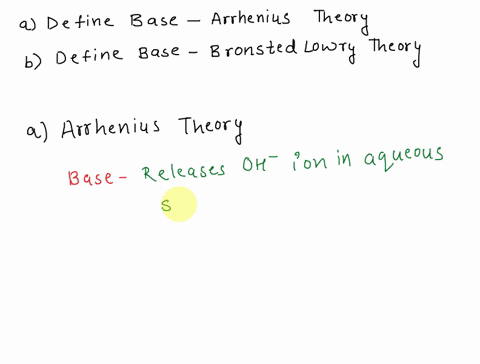 a) Define Base – Arrhenius Theory
b) Define Base – Bronsted Lowry Theory
a) Arrhenius Theory
Base – Releases OH⁻ ion in aqueous
s